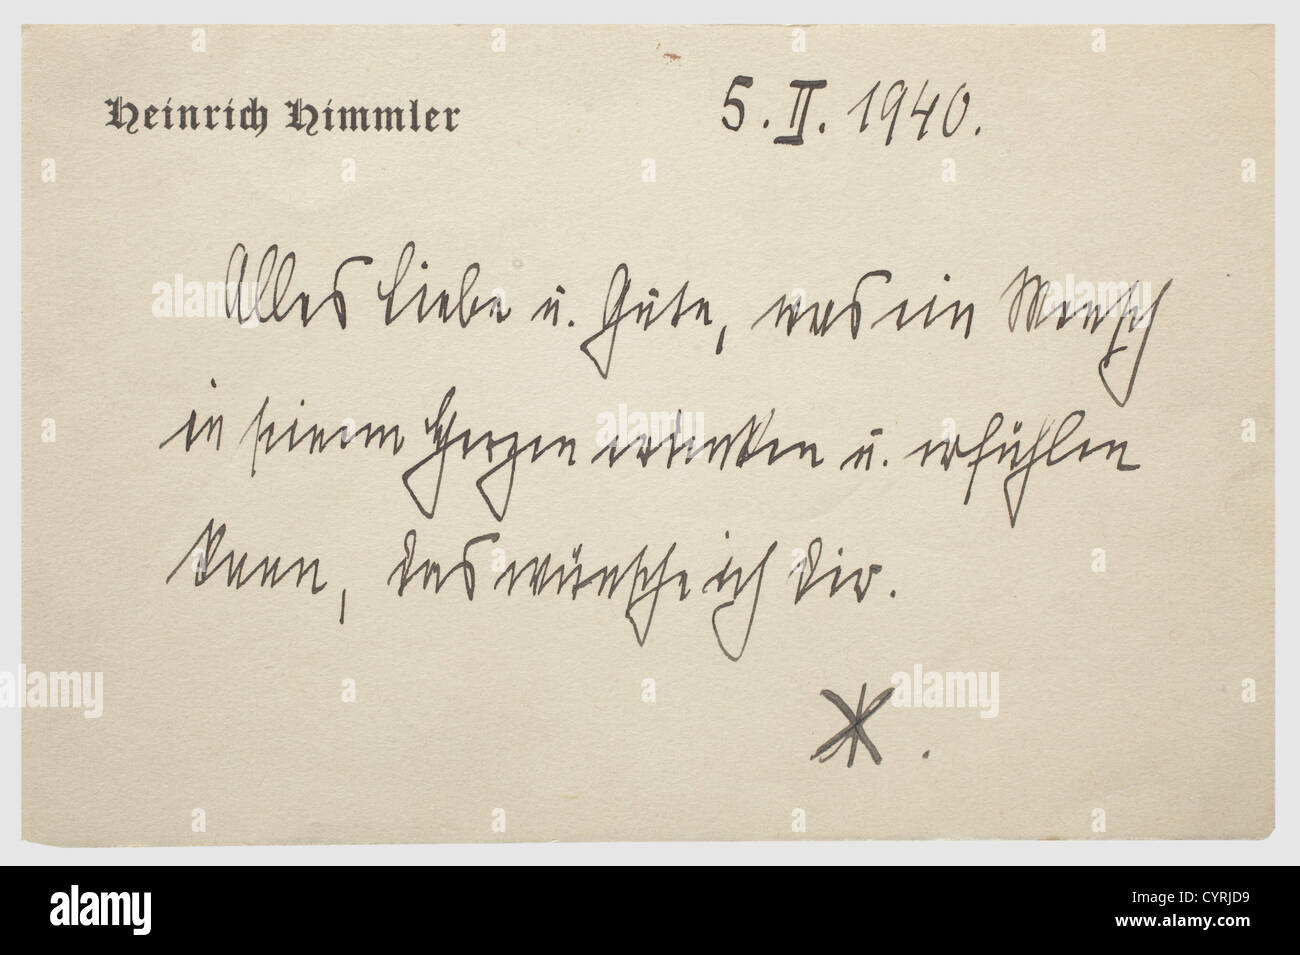 Heinrich Himmler
5. II. 1940.
Alles Liebe u. Gute, was ein Mensch
in seinem Herzen erdenken u. erfühlen
kann, das wünsche ich Dir.
alamy
Image ID: CYRJD9
www.alamy.com